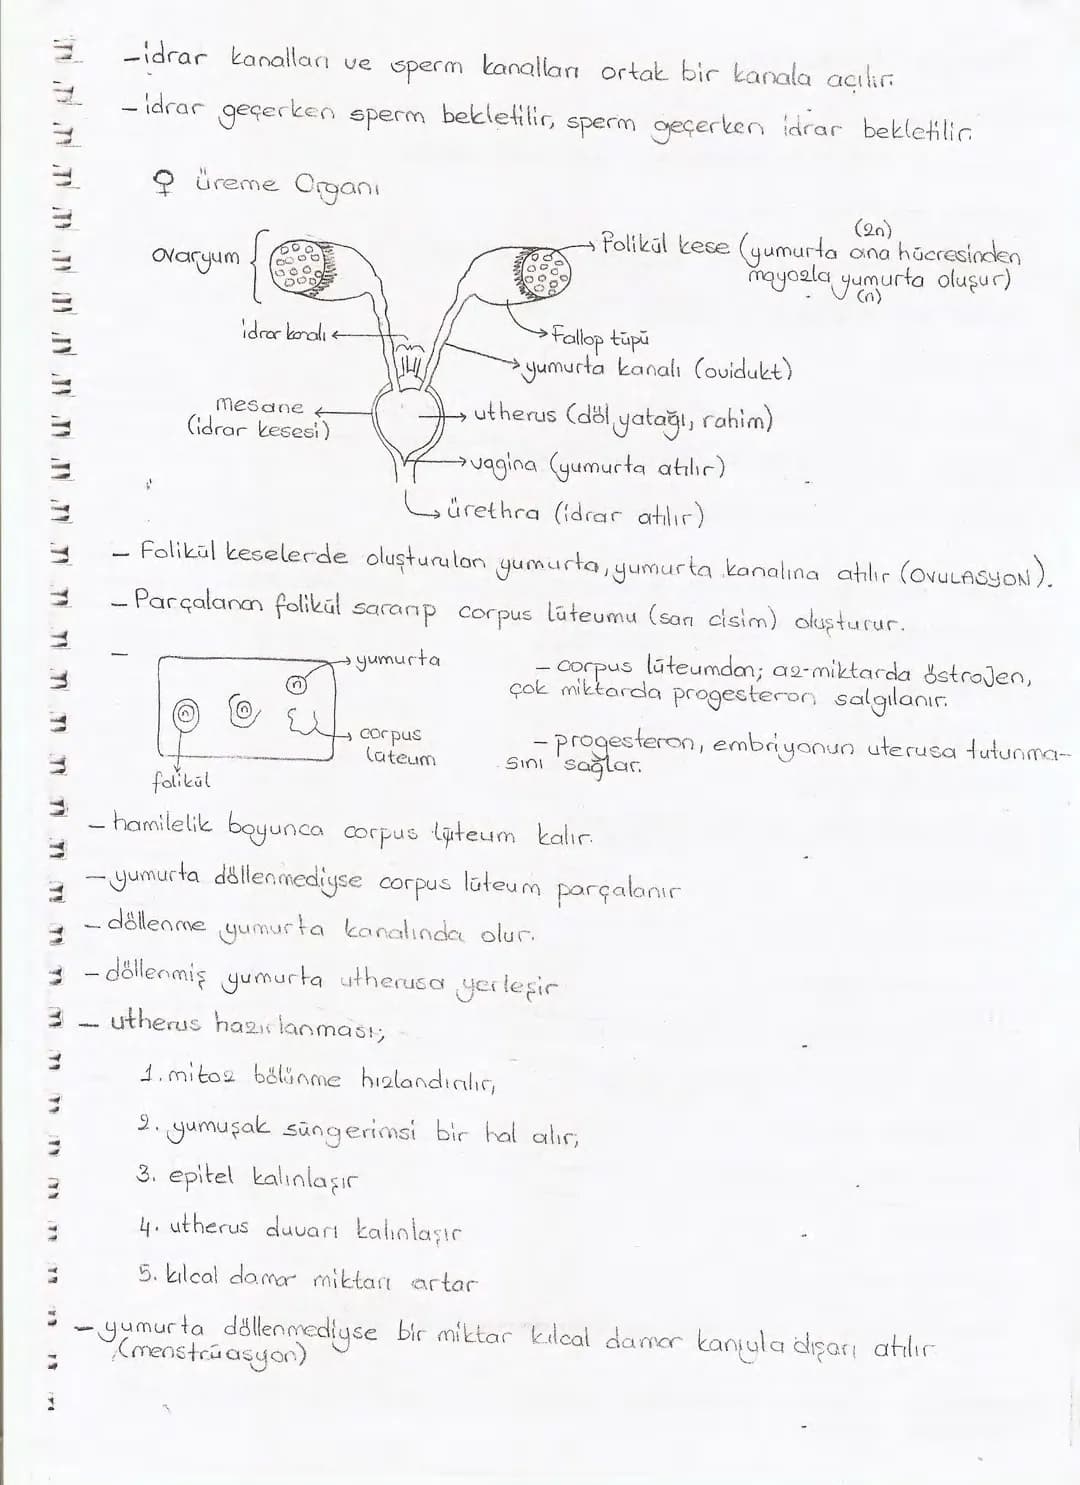 -idrar kanalları ve sperm kanalları ortak bir kanala açılır.
-idrar geçerken sperm bekletilir, sperm geçerken idrar bekletilir.
♀ üreme Organı
ovaryum
(2n)
Folikül kese (yumurta ana hücresinden
mayozla yumurta oluşur)
(n)
idrar kanalı
Fallop tüpü
yumurta kanalı (ovidukt)
mesane
(idrar kesesi)
utherus (döl yatağı, rahim)
vagina (yumurta atılır)
ürethra (idrar atılır)
- Folikül keselerde oluşturulan yumurta, yumurta kanalına atılır (OVULASYON).
- Parçalanan folikül sararıp corpus lüteumu (sarı cisim) oluşturur.
-
yumurta
(n)
(n)
(n)
corpus
lüteum
folikül
- corpus lüteumdan; az miktarda östrojen,
çok miktarda progesteron salgılanır.
- progesteron, embriyonun uterusa tutunma-
sını sağlar.
- hamilelik boyunca corpus lüteum kalır.
- yumurta döllenmediyse corpus lüteum parçalanır
- döllenme yumurta kanalında olur.
- döllenmiş yumurta utherusa yerleşir
- utherus hazırlanması;
1. mitoz bölünme hızlandırılır,
2. yumuşak süngerimsi bir hal alır,
3. epitel kalınlaşır
4. utherus duvarı kalınlaşır
5. kılcal damar miktarı artar
- yumurta döllenmediyse bir miktar kılcal damar kanıyla dışarı atılır
(menstrüasyon)